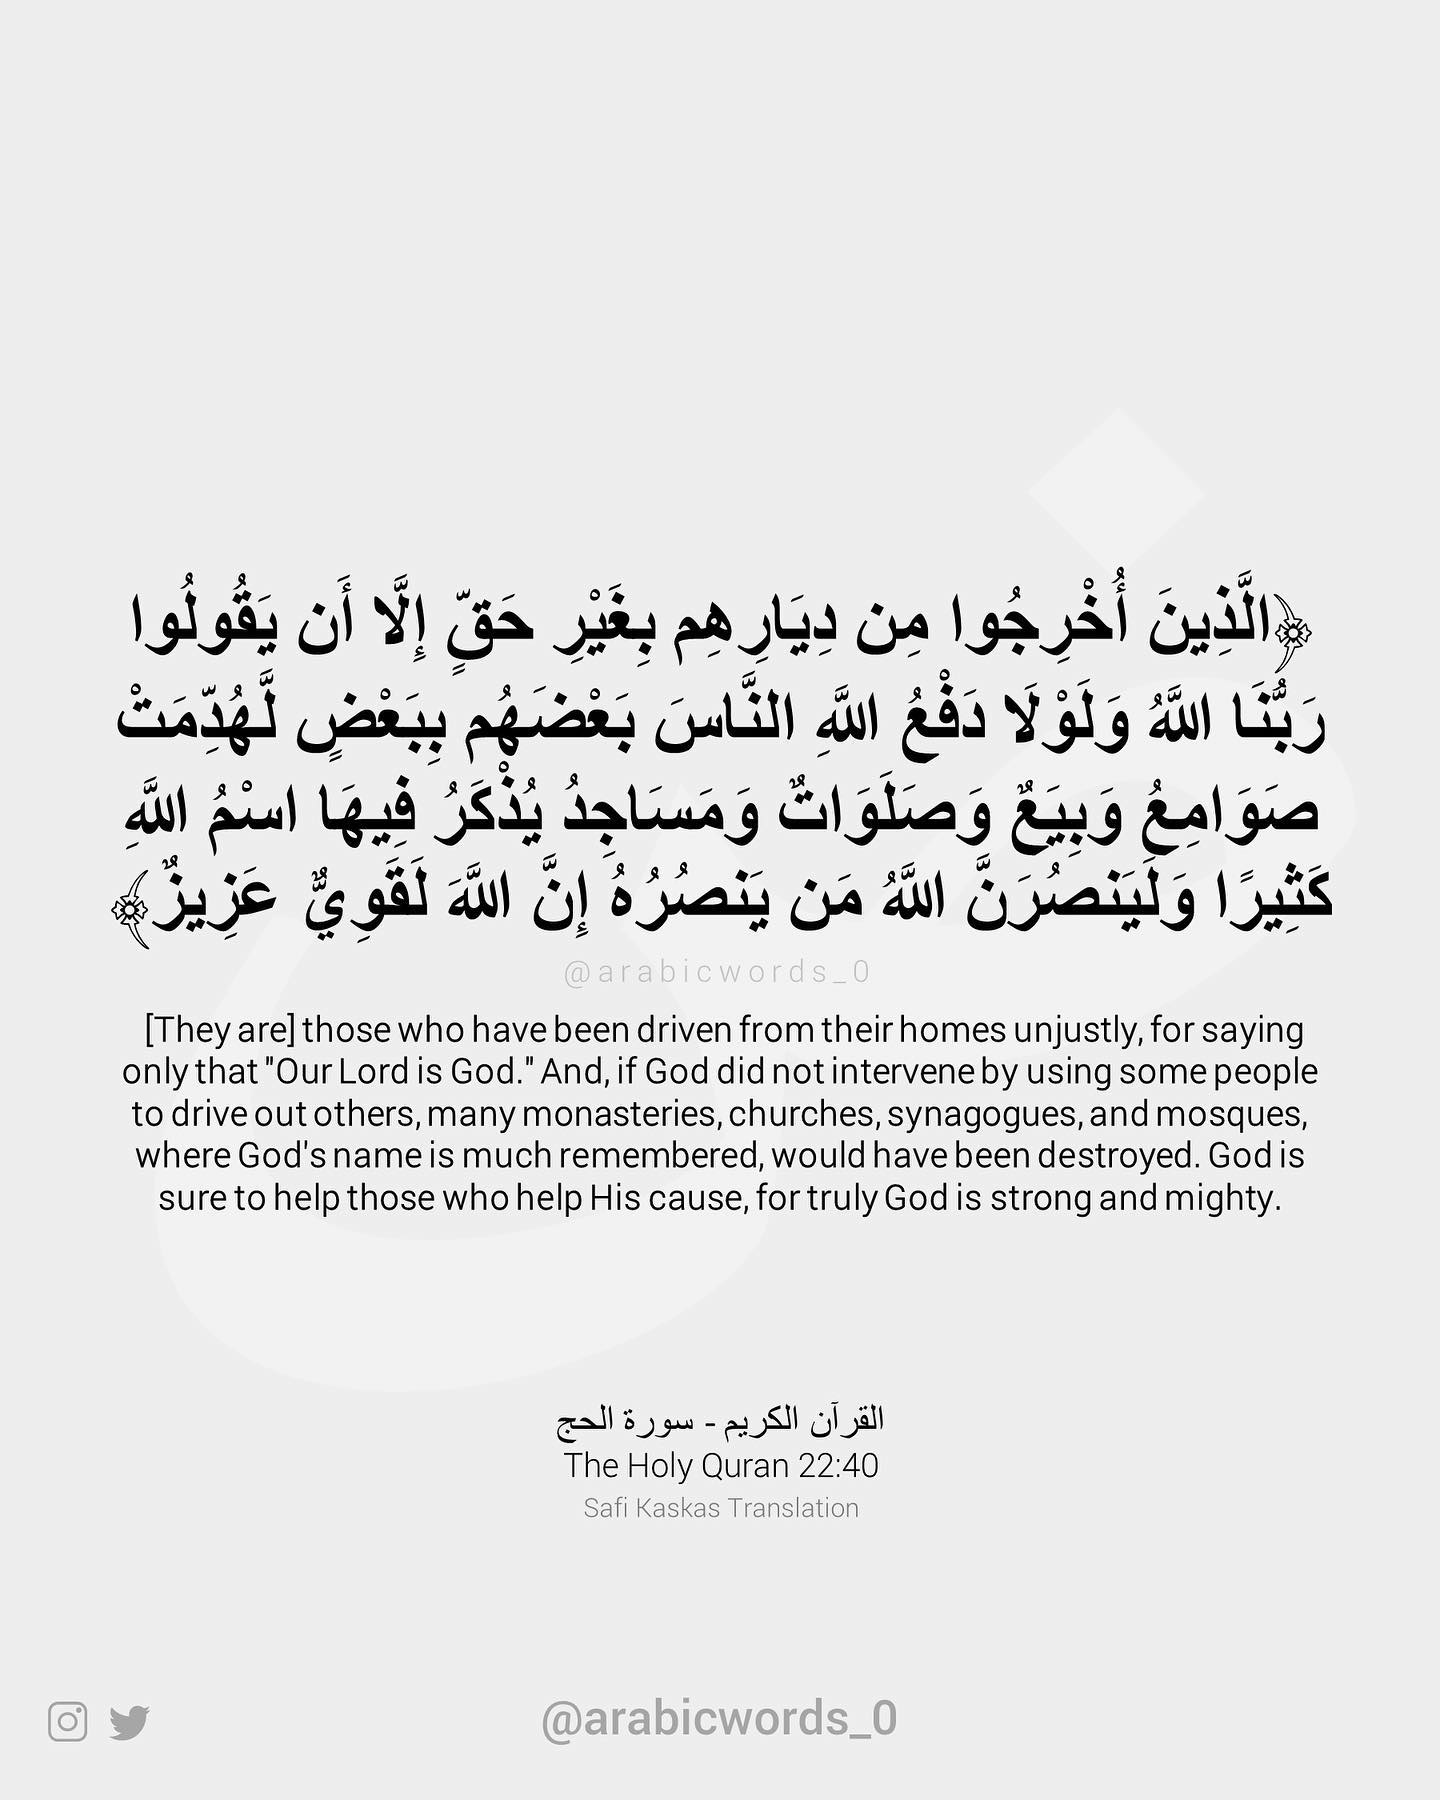 ﴿الَّذِينَ أُخْرِجُوا مِن دِيَارِهِم بِغَيْرِ حَقٍّ إِلَّا أَن يَقُولُوا
رَبُّنَا اللَّهُ وَلَوْلَا دَفْعُ اللَّهِ النَّاسَ بَعْضَهُم بِبَعْضٍ لَّهُدِّمَتْ
صَوَامِعُ وَبِيَعٌ وَصَلَوَاتٌ وَمَسَاجِدُ يُذْكَرُ فِيهَا اسْمُ اللَّهِ
كَثِيرًا وَلَيَنصُرَنَّ اللَّهُ مَن يَنصُرُهُ إِنَّ اللَّهَ لَقَوِيٌّ عَزِيزٌ﴾
@arabicwords_0
[They are] those who have been driven from their homes unjustly, for saying
only that "Our Lord is God." And, if God did not intervene by using some people
to drive out others, many monasteries, churches, synagogues, and mosques,
where God's name is much remembered, would have been destroyed. God is
sure to help those who help His cause, for truly God is strong and mighty.
القرآن الكريم - سورة الحج
The Holy Quran 22:40
Safi Kaskas Translation
@arabicwords_0